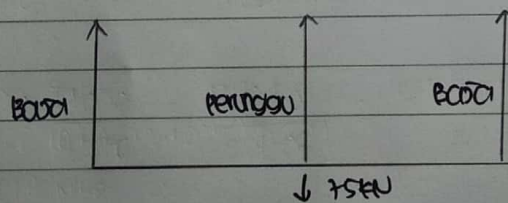 Baja Perunggu Baja
↓ 75 kN